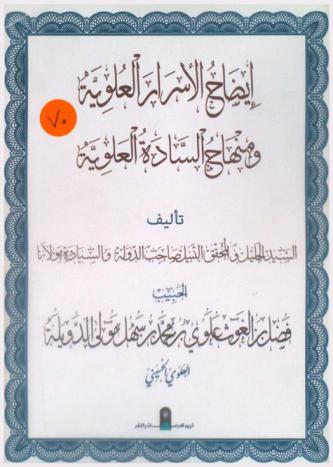 إيضاح الأسرار العلوية
٧٠
ومنهاج السادة العلوية
تأليف
السيد الجليل والمحقق النبيل صاحب الدولة والسيادة مولانا
الحبيب
فضل بن الغوث علوي بن محمد بن سهل مولى الدويلة
العلوي الحسيني
تريم للدراسات والنشر